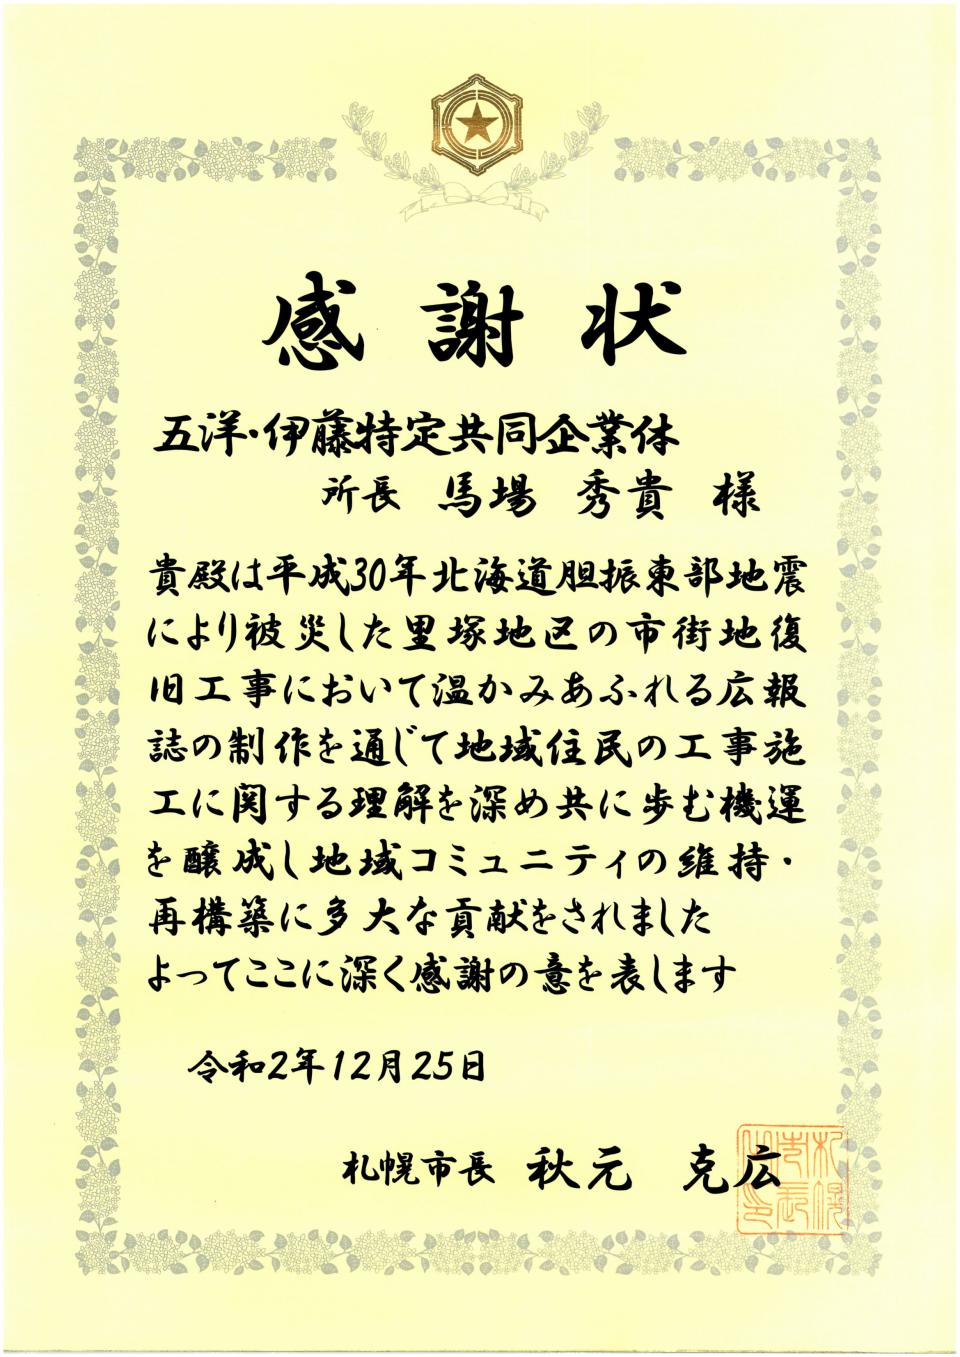 感謝状
五洋・伊藤特定共同企業体
所長 馬場 秀貴 様
貴殿は平成30年北海道胆振東部地震
により被災した里塚地区の市街地復
旧工事において温かみあふれる広報
誌の制作を通じて地域住民の工事施
工に関する理解を深め共に歩む機運
を醸成し地域コミュニティの維持・
再構築に多大な貢献をされました
よってここに深く感謝の意を表します
令和2年12月25日
札幌市長 秋元 克広